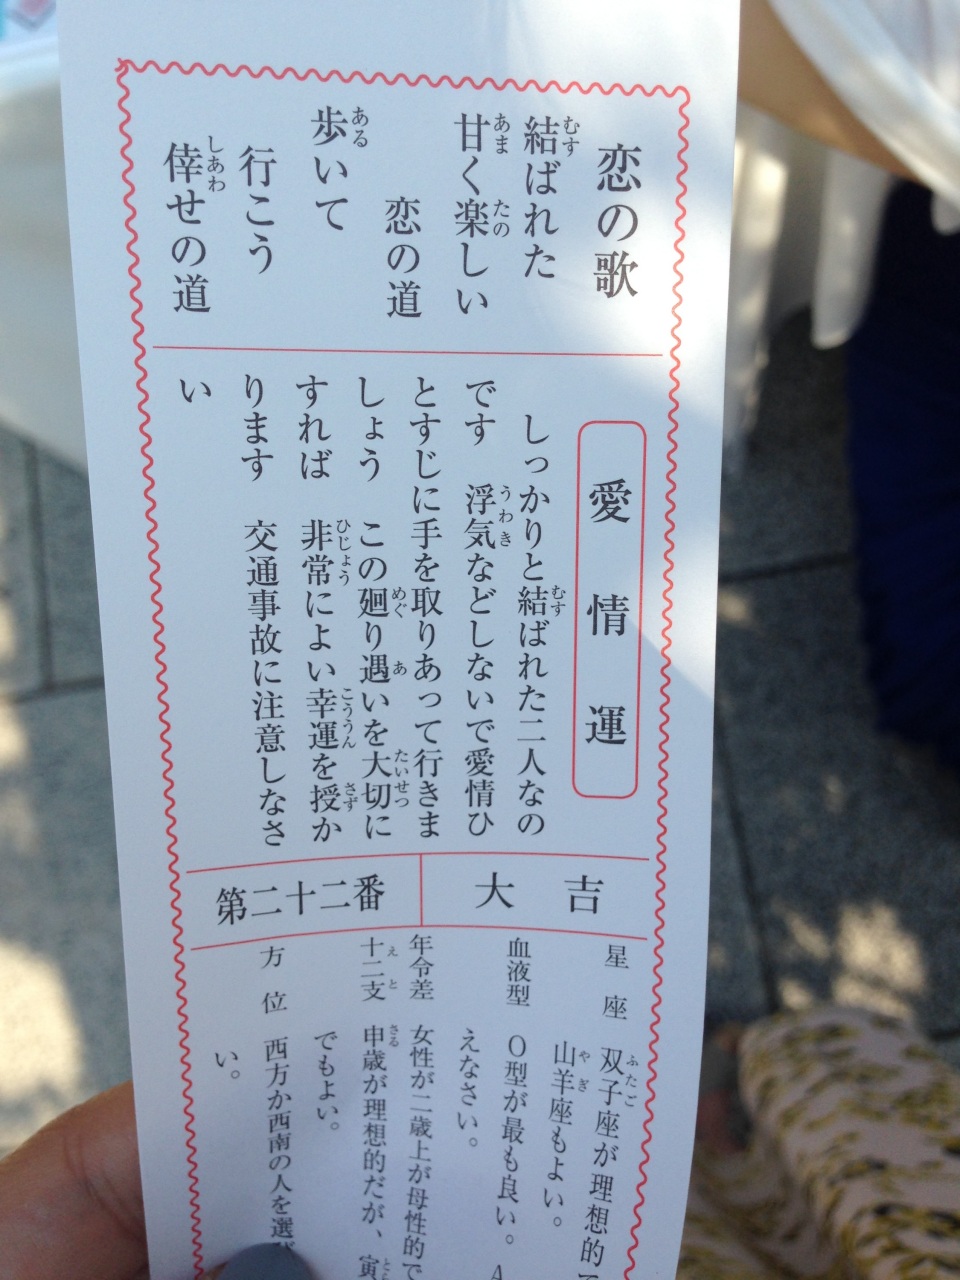 恋の歌
結ばれた
甘く楽しい
恋の道
歩いて
行こう
倖せの道
愛情運
しっかりと結ばれた二人なの
です　浮気などしないで愛情ひ
とすじに手を取りあって行きま
しょう　この廻り遇いを大切に
すれば　非常によい幸運を授か
ります　交通事故に注意しなさ
い
大吉
第二十二番
星座　双子座が理想的
山羊座もよい。
血液型　O型が最も良い。A
えなさい。
年令差　女性が二歳上が母性的で
十二支　申歳が理想的だが、寅
でもよい。
方位　西方か西南の人を選
い。